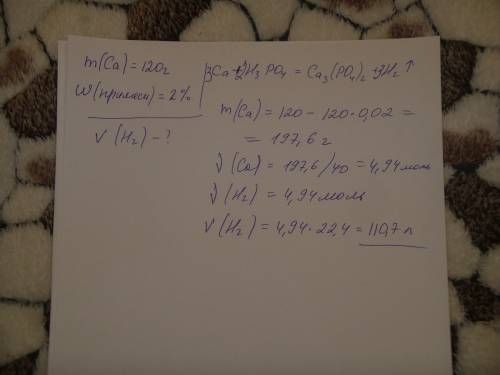 m(Ca)=120г
W(примеси)=2%
V(H₂)-?
3Ca+2H₃PO₄=Ca₃(PO₄)₂+3H₂↑
m(Ca)=120-120·0,02=
=197,6г
ν(Ca)=197,6/40=4,94моль
ν(H₂)=4,94моль
V(H₂)=4,94·22,4=110,7л